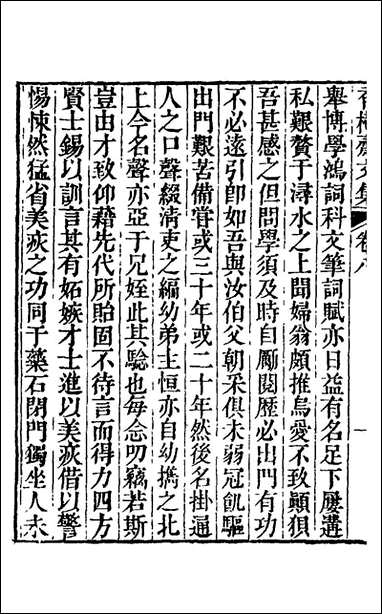 香樹齋文集 卷八
舉博學鴻詞科文筆詞賦亦日益有名足下屢遘
私艱贅于潯水之上聞婦翁頗推烏愛不致顛狽
吾甚感之但問學須及時自勵閱歷必出門有功
不必遠引卽如吾與汝伯父朝采俱未弱冠飢驅
出門艱苦備甞或三十年或二十年然後名掛通
人之口聲綴淸吏之編幼弟主恒亦自幼擕之北
上今名聲亦亞于兄姪此其驗也每念叨竊若斯
豈由才致仰藉先代所貽固不待言而得力四方
賢士錫以訓言其有妬嫉才士進以美疢借以警
惕悚然猛省美疢之功同于藥石閉門獨坐人未